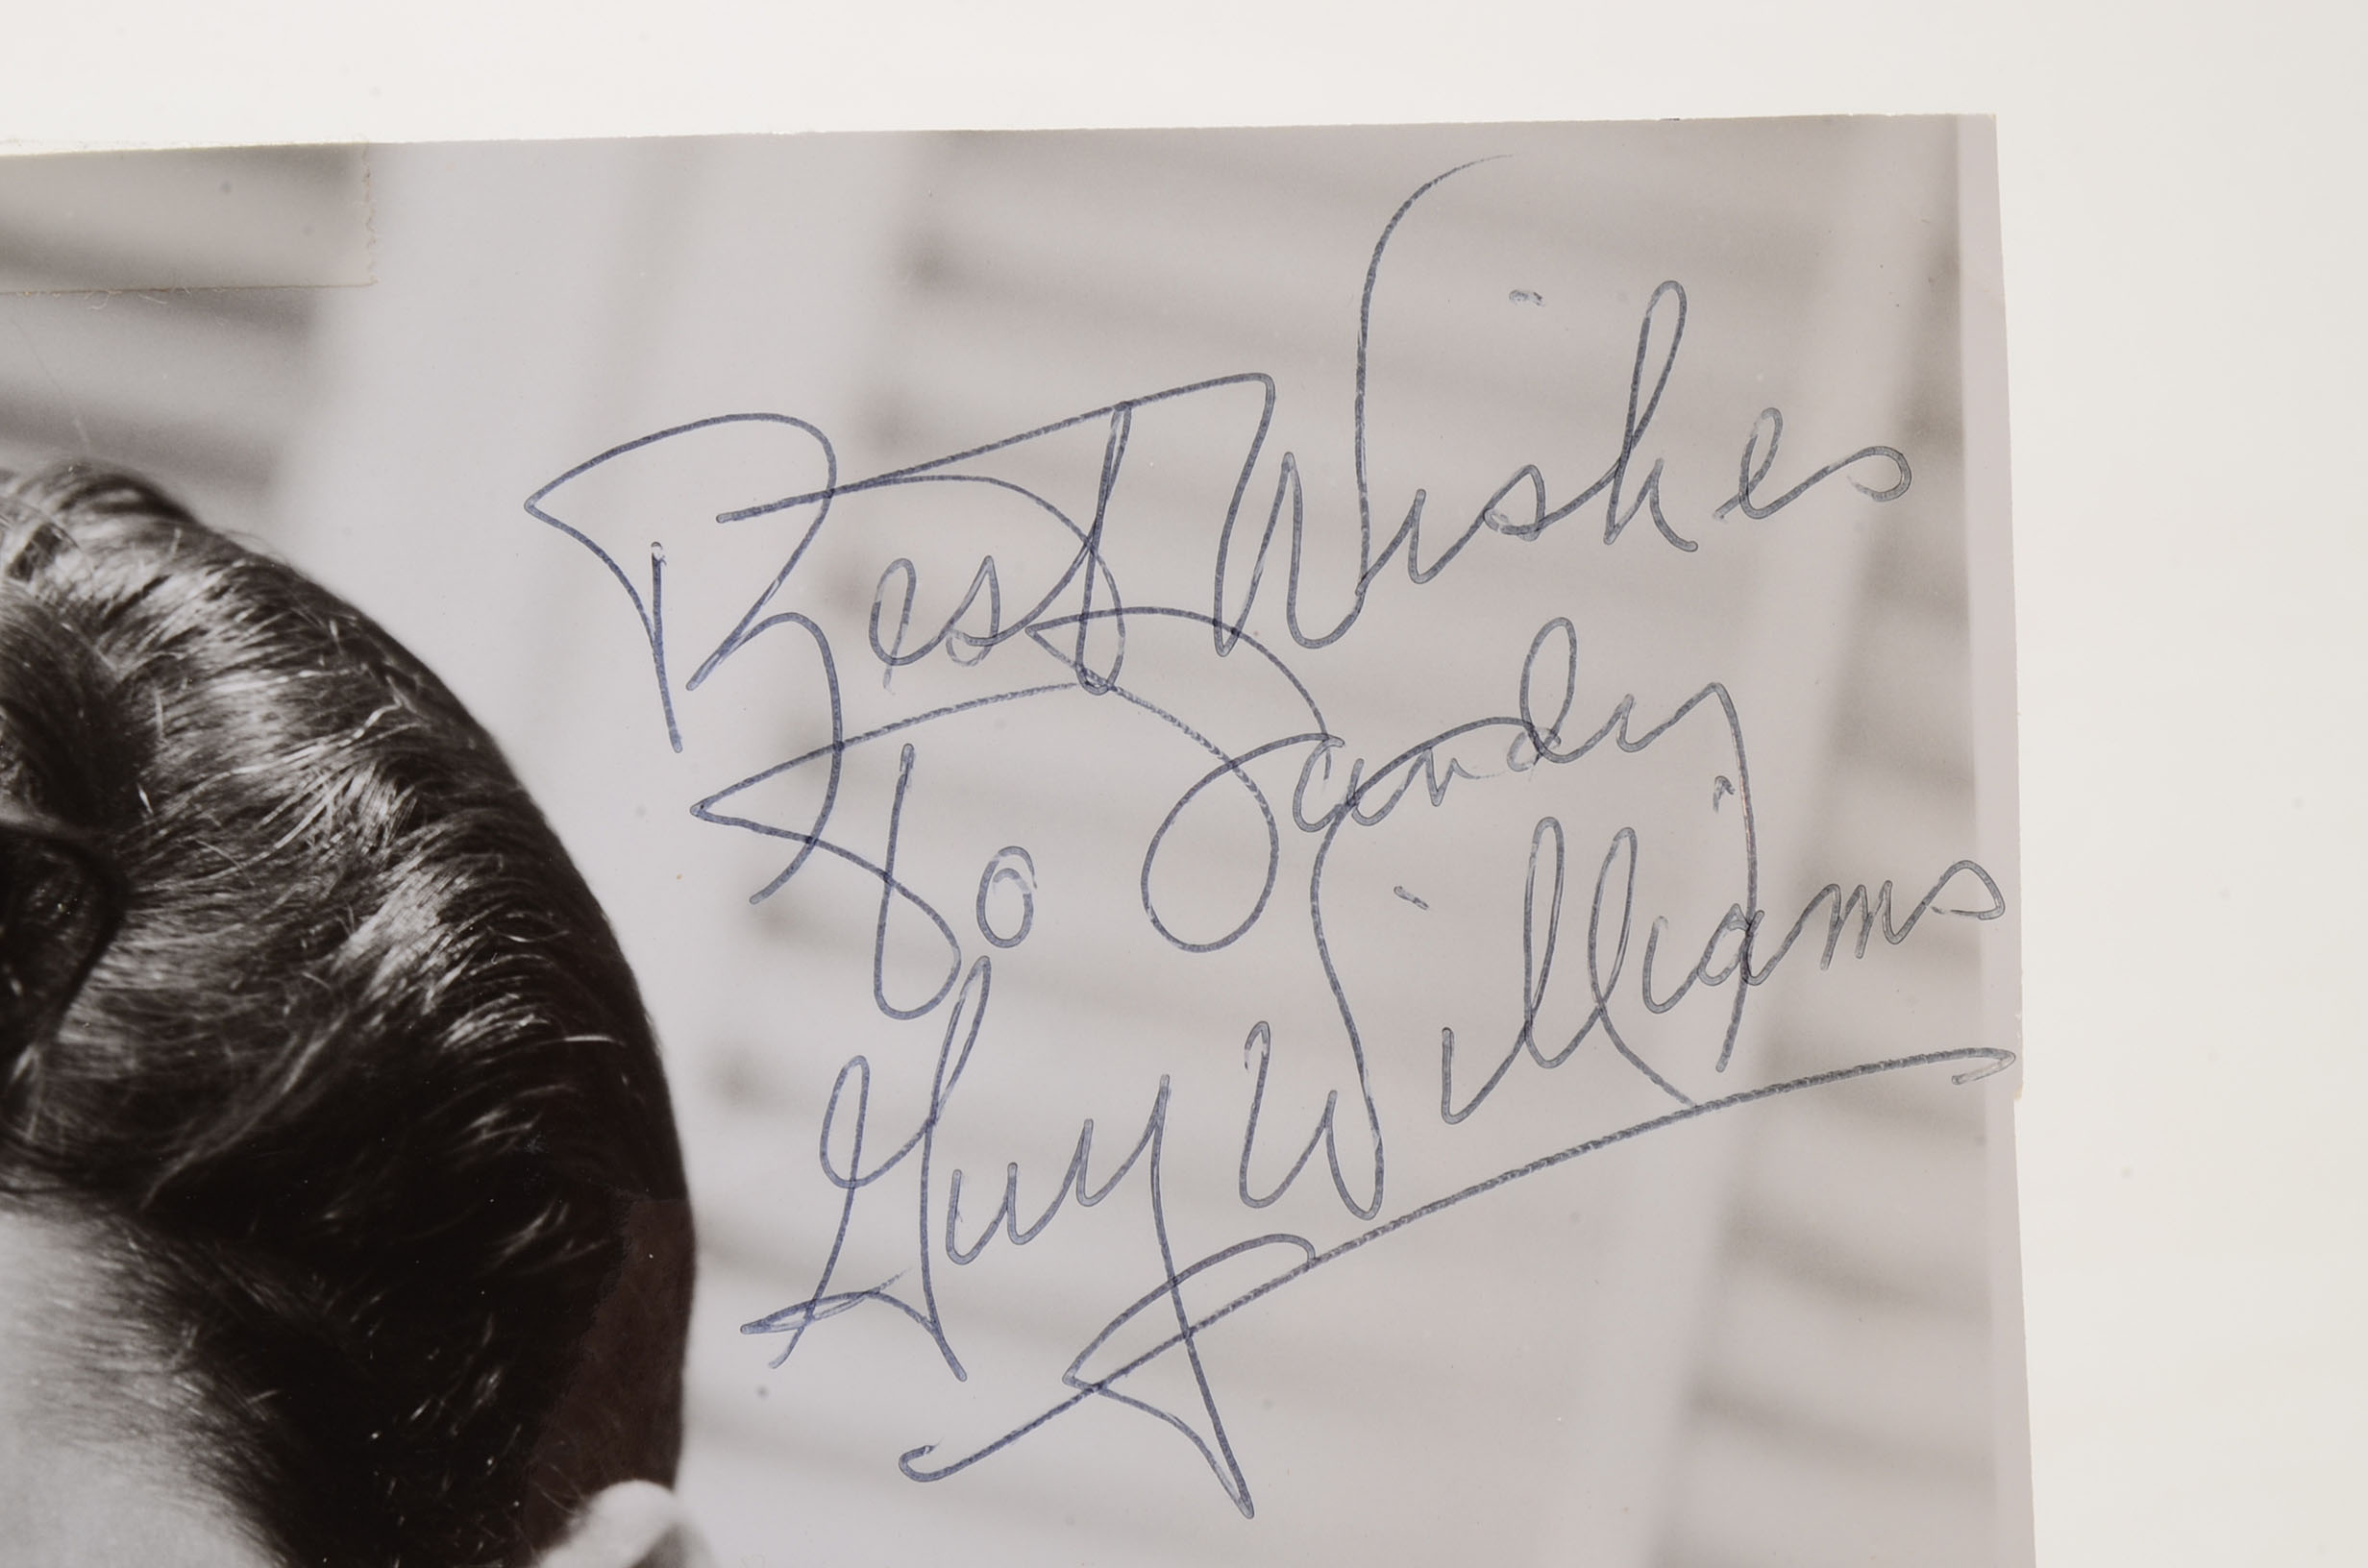 Best Wishes
to Sandy
Guy Williams